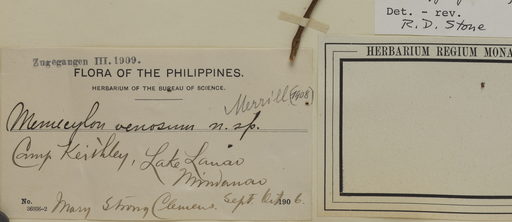 Det. - rev.
R. D. Stone
Zugegangen III. 1909.
FLORA OF THE PHILIPPINES.
HERBARIUM OF THE BUREAU OF SCIENCE.
Merrill (1908)
Memecylon venosum n. sp.
Camp Keithley, Lake Lanao
Mindanao
No.
Mary Strong Clemens. Sept 1906.
HERBARIUM REGIUM MONA